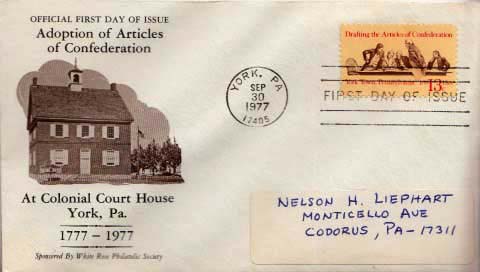 OFFICIAL FIRST DAY OF ISSUE
Adoption of Articles
of Confederation
At Colonial Court House
York, Pa.
1777 - 1977
Sponsored By White Rose Philatelic Society
YORK, PA
SEP
30
1977
17405
FIRST DAY OF ISSUE
Drafting the Articles of Confederation
York Town, Pennsylvania
13c
NELSON H. LIEPHART
MONTICELLO AVE
CODORUS, PA - 17311